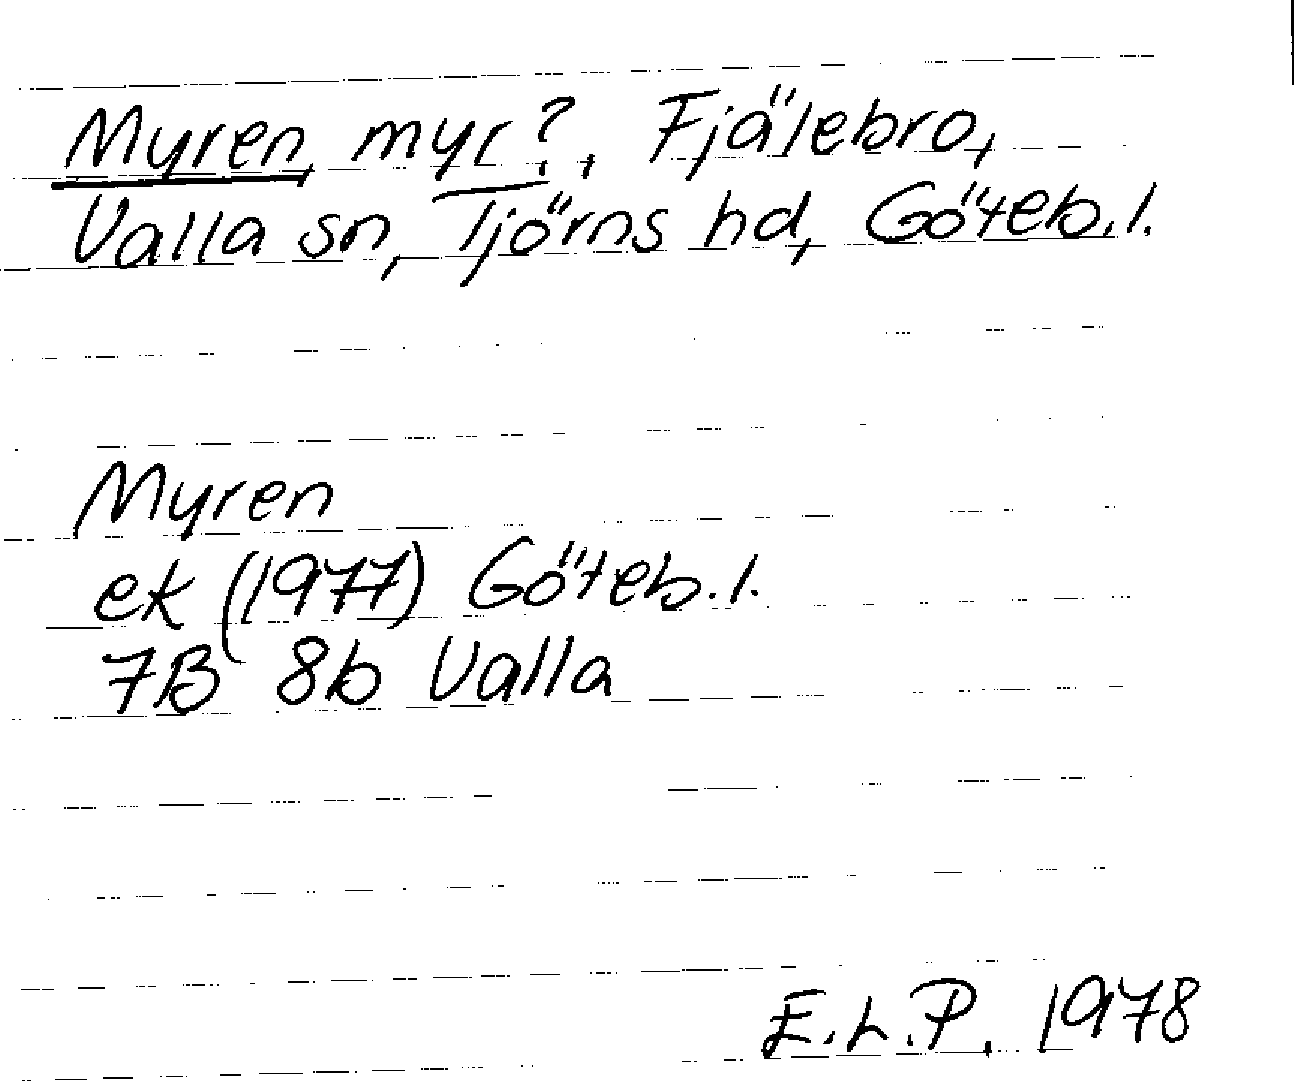 Myren, myr?, Fjälebro,
Valla sn, Tjörns hd, Göteb.l.
Myren
ek (1977) Göteb.l.
7B 8b Valla
E.L.P. 1978